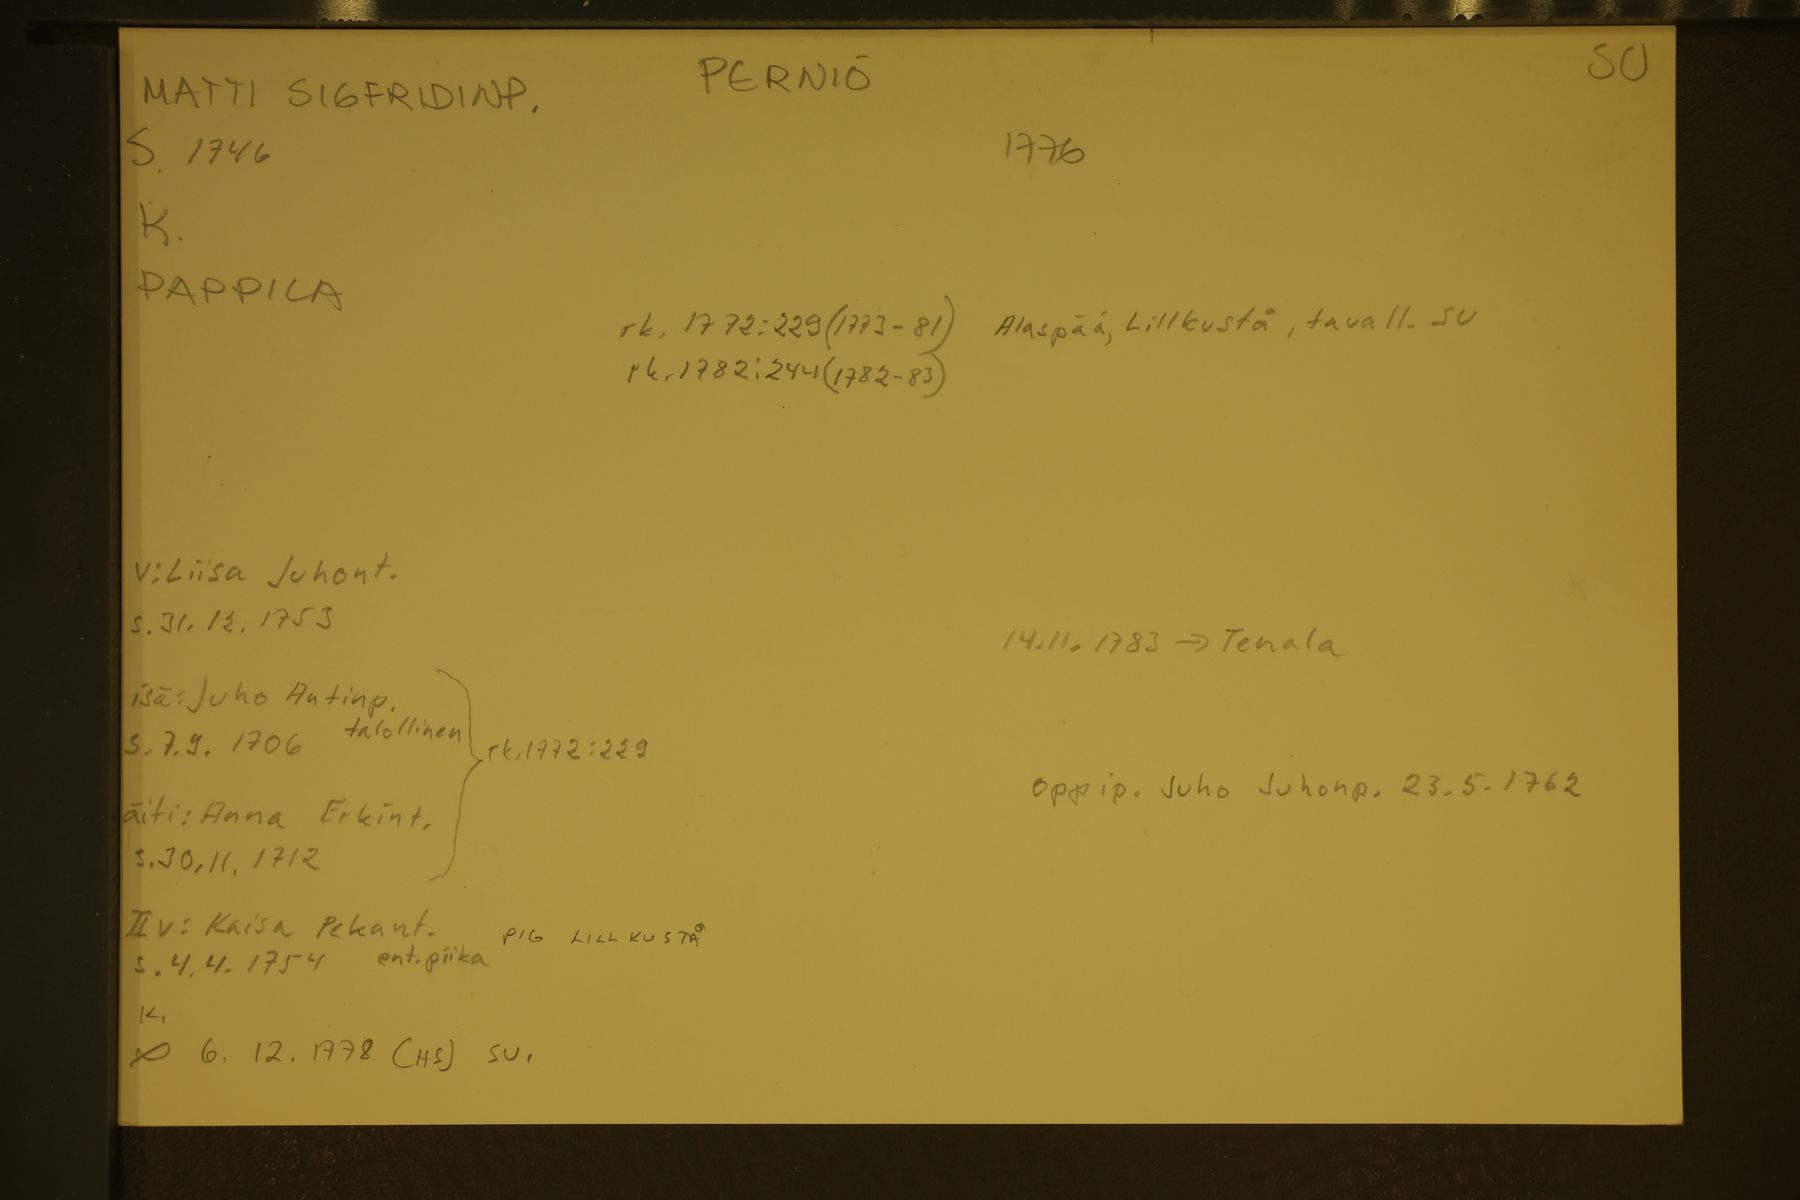 MATTI SIGFRIDINP. PERNIÖ SU
S. 1746 1776
K.
PAPPILA
rk. 1772:229(1773-81) Alaspää, Lillkustå, tavall. SU
rk. 1782:244(1782-83)
v: Liisa Juhont.
s. 31. 12. 1753
14.11. 1783 → Tenala
isä: Juho Antinp.
talollinen
s. 7.9. 1706 rk. 1772:229
oppip. Juho Juhonp. 23.5.1762
äiti: Anna Erkint.
s. 30.11. 1712
II v: Kaisa Pekant. PIG LILLKUSTÅ
s. 4.4. 1754 ent. piika
K.
∞ 6. 12. 1778 (HS) SU.